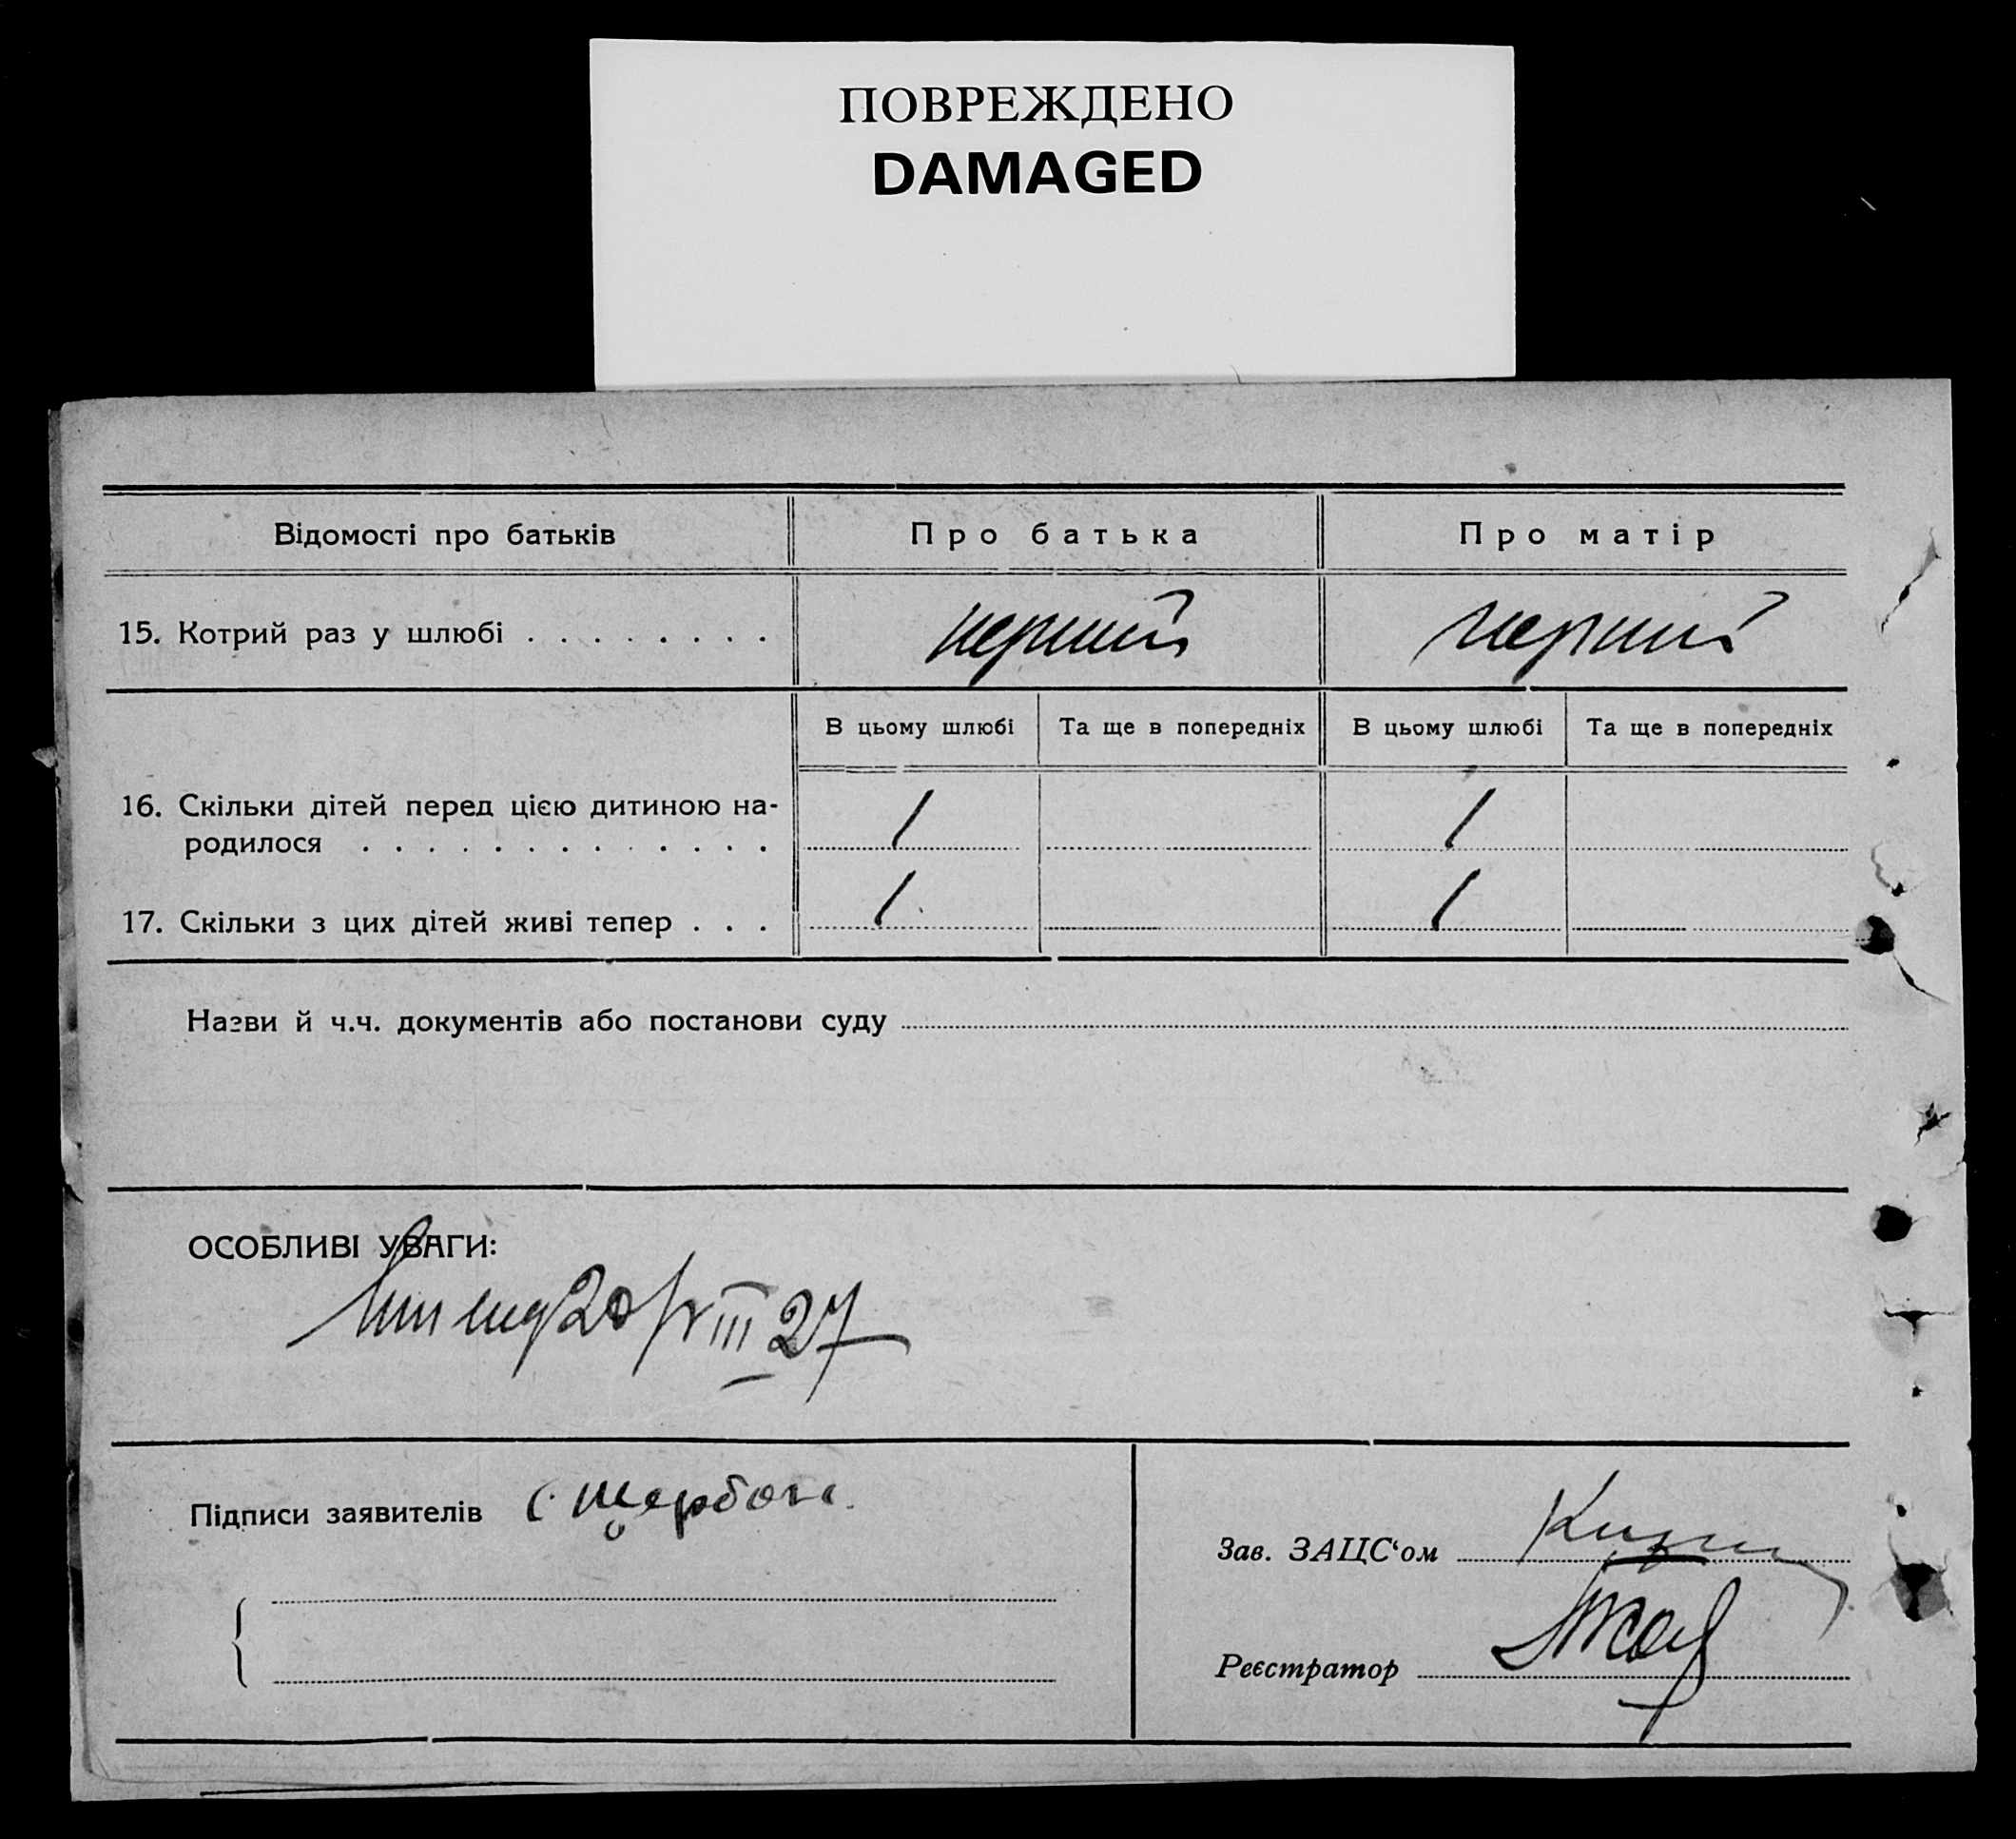 ПОВРЕЖДЕНО
DAMAGED
Відомості про батьків
Про батька
Про матір
15. Котрий раз у шлюбі . . . . . . . .
перший
перший
В цьому шлюбі
Та ще в попередніх
В цьому шлюбі
Та ще в попередніх
16. Скільки дітей перед цією дитиною на-
родилося . . . . . . . . . . . . .
1
1
17. Скільки з цих дітей живі тепер . . .
1
1
Назви й ч.ч. документів або постанови суду
ОСОБЛИВІ УВАГИ:
20/VIII 27
Підписи заявителів
Зав. ЗАЦС‘ом
Реєстратор